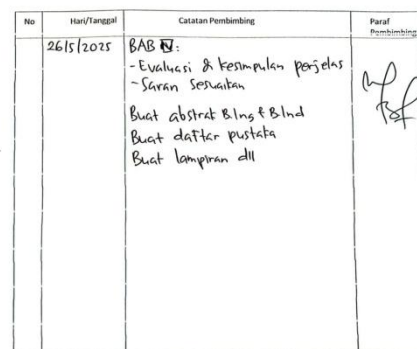 No Hari/Tanggal Catatan Pembimbing Paraf
Pembimbing
26/5/2025 BAB IV:
- Evaluasi & kesimpulan perjelas
- Saran sesuaikan
Buat abstrak B.Ing & B.Ind
Buat daftar pustaka
Buat lampiran dll